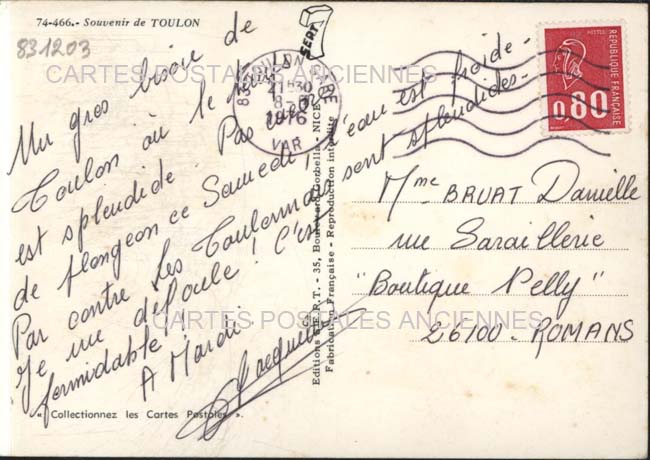 74-466.- Souvenir de TOULON
831203
SERT
TOULON
21H30
8
1976
VAR
POSTES
REPUBLIQUE FRANÇAISE
0,80
CARTES POSTALES ANCIENNES
Un gros bisou de
Toulon où le
est splendide. Pas
de plongeon ce Samedi! l'eau est froide -
Par contre les Toulonnais sont splendides -
Je me défoule! C'est
formidable!!
A Mardi
Jacqueline
Mme BRUAT Danielle
rue Saraillerie
"Boutique Pelly"
26100 - ROMANS
CARTES POSTALES ANCIENNES
Editions S.E.R.T. - 35, Boulevard Gorbella - NICE
Fabrication Française - Reproduction interdite
« Collectionnez les Cartes Postales ».